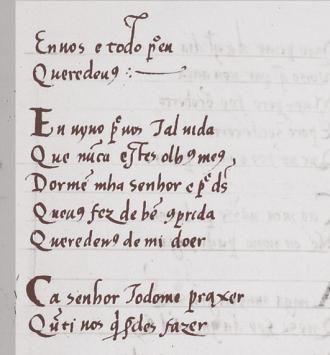 En uos e todo pᵒ en
Queredeuꝯ :~
En uyuo pᵒ uos Tal uida
Que nũca estes olhꝯ meꝯ,
Dormẽ mha senhor e pᵒ dš
Queuꝯ fez de bẽ ꝯprida
Queredeuꝯ de mi doer
Ca senhor Todome praxer
Qũti uos q̃ pᵒdes fazer